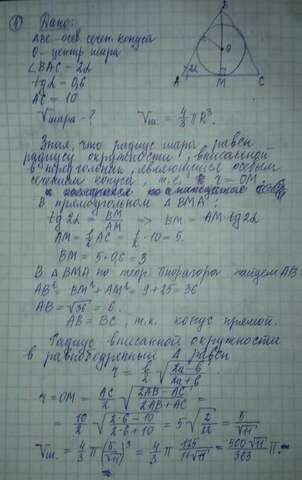 ① Дано:
ABC-осев. сечен. конуса
O-центр шара
∠BAC = 2α
tg α = 0,6
AC = 10
B
O
2α
A M C
Vшара - ? Vш. = 4/3 πR³.
Зная, что радиус шара равен
радиусу окружности, вписанной
в треугольник, являющийся осевым
сечением конуса, т.е. r = OM,
В прямоугольном Δ BMA:
tg 2α = BM/AM ⇒ BM = AM·tg2α
AM = 1/2 AC = 1/2 · 10 = 5.
BM = 5·0,6 = 3
В Δ BMA по теор. Пифагора найдем AB.
AB² = BM² + AM² = 9 + 25 = 36
AB = √36 = 6.
AB = BC, т.к. конус прямой.
Радиус вписанной окружности
в равнобедренный Δ равен
r = b/2 √((2a-b)/(2a+b))
r = OM = AC/2 √((2AB-AC)/(2AB+AC)) =
= 10/2 √((2·6-10)/(2·6+10)) = 5√(2/22) = 5/√11
Vш. = 4/3 π (5/√11)³ = 4/3 π 125/(11√11) = 500√11/363 π.